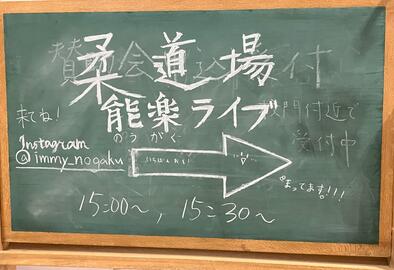 柔道場
能楽ライブ
のうがく
来てね！
Instagram
@immy_nogaku
門付近で
受付中
まってます!!!
15:00〜, 15:30〜